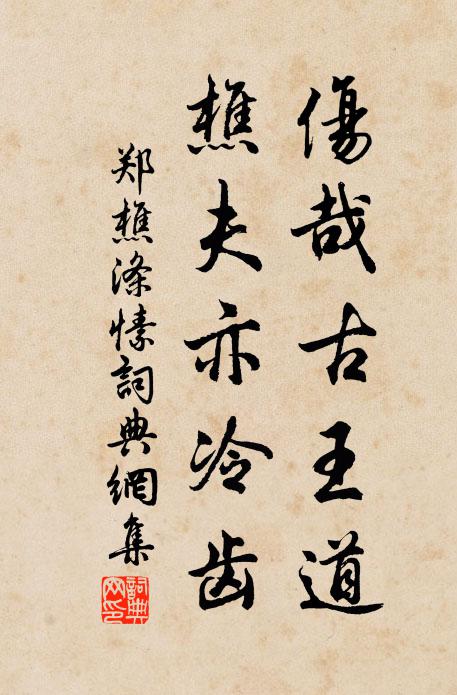 傷哉古王道
樵夫亦冷齿
郑樵滌愫詞典網集
詞典
网印